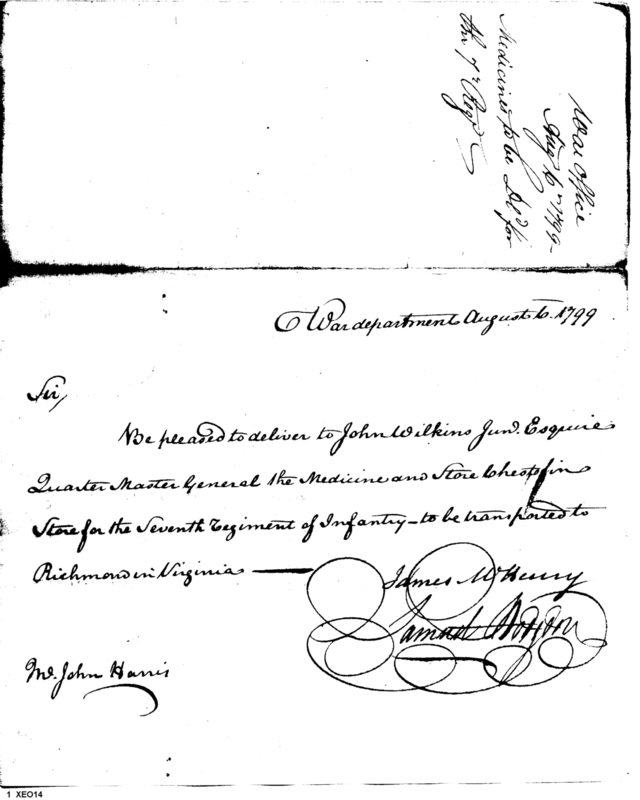 War Office
Aug 6th 1799
Medicines to be Dld for
the 7th Regt
War department August 6. 1799
Sir,
Be pleased to deliver to John Wilkins Junr. Esquire
Quarter Master General the Medicine and Store Chests in
Store for the Seventh Regiment of Infantry - to be transported to
Richmond in Virginia
James McHenry
Samuel Hodgdon
Mr. John Harris
1 XEO14